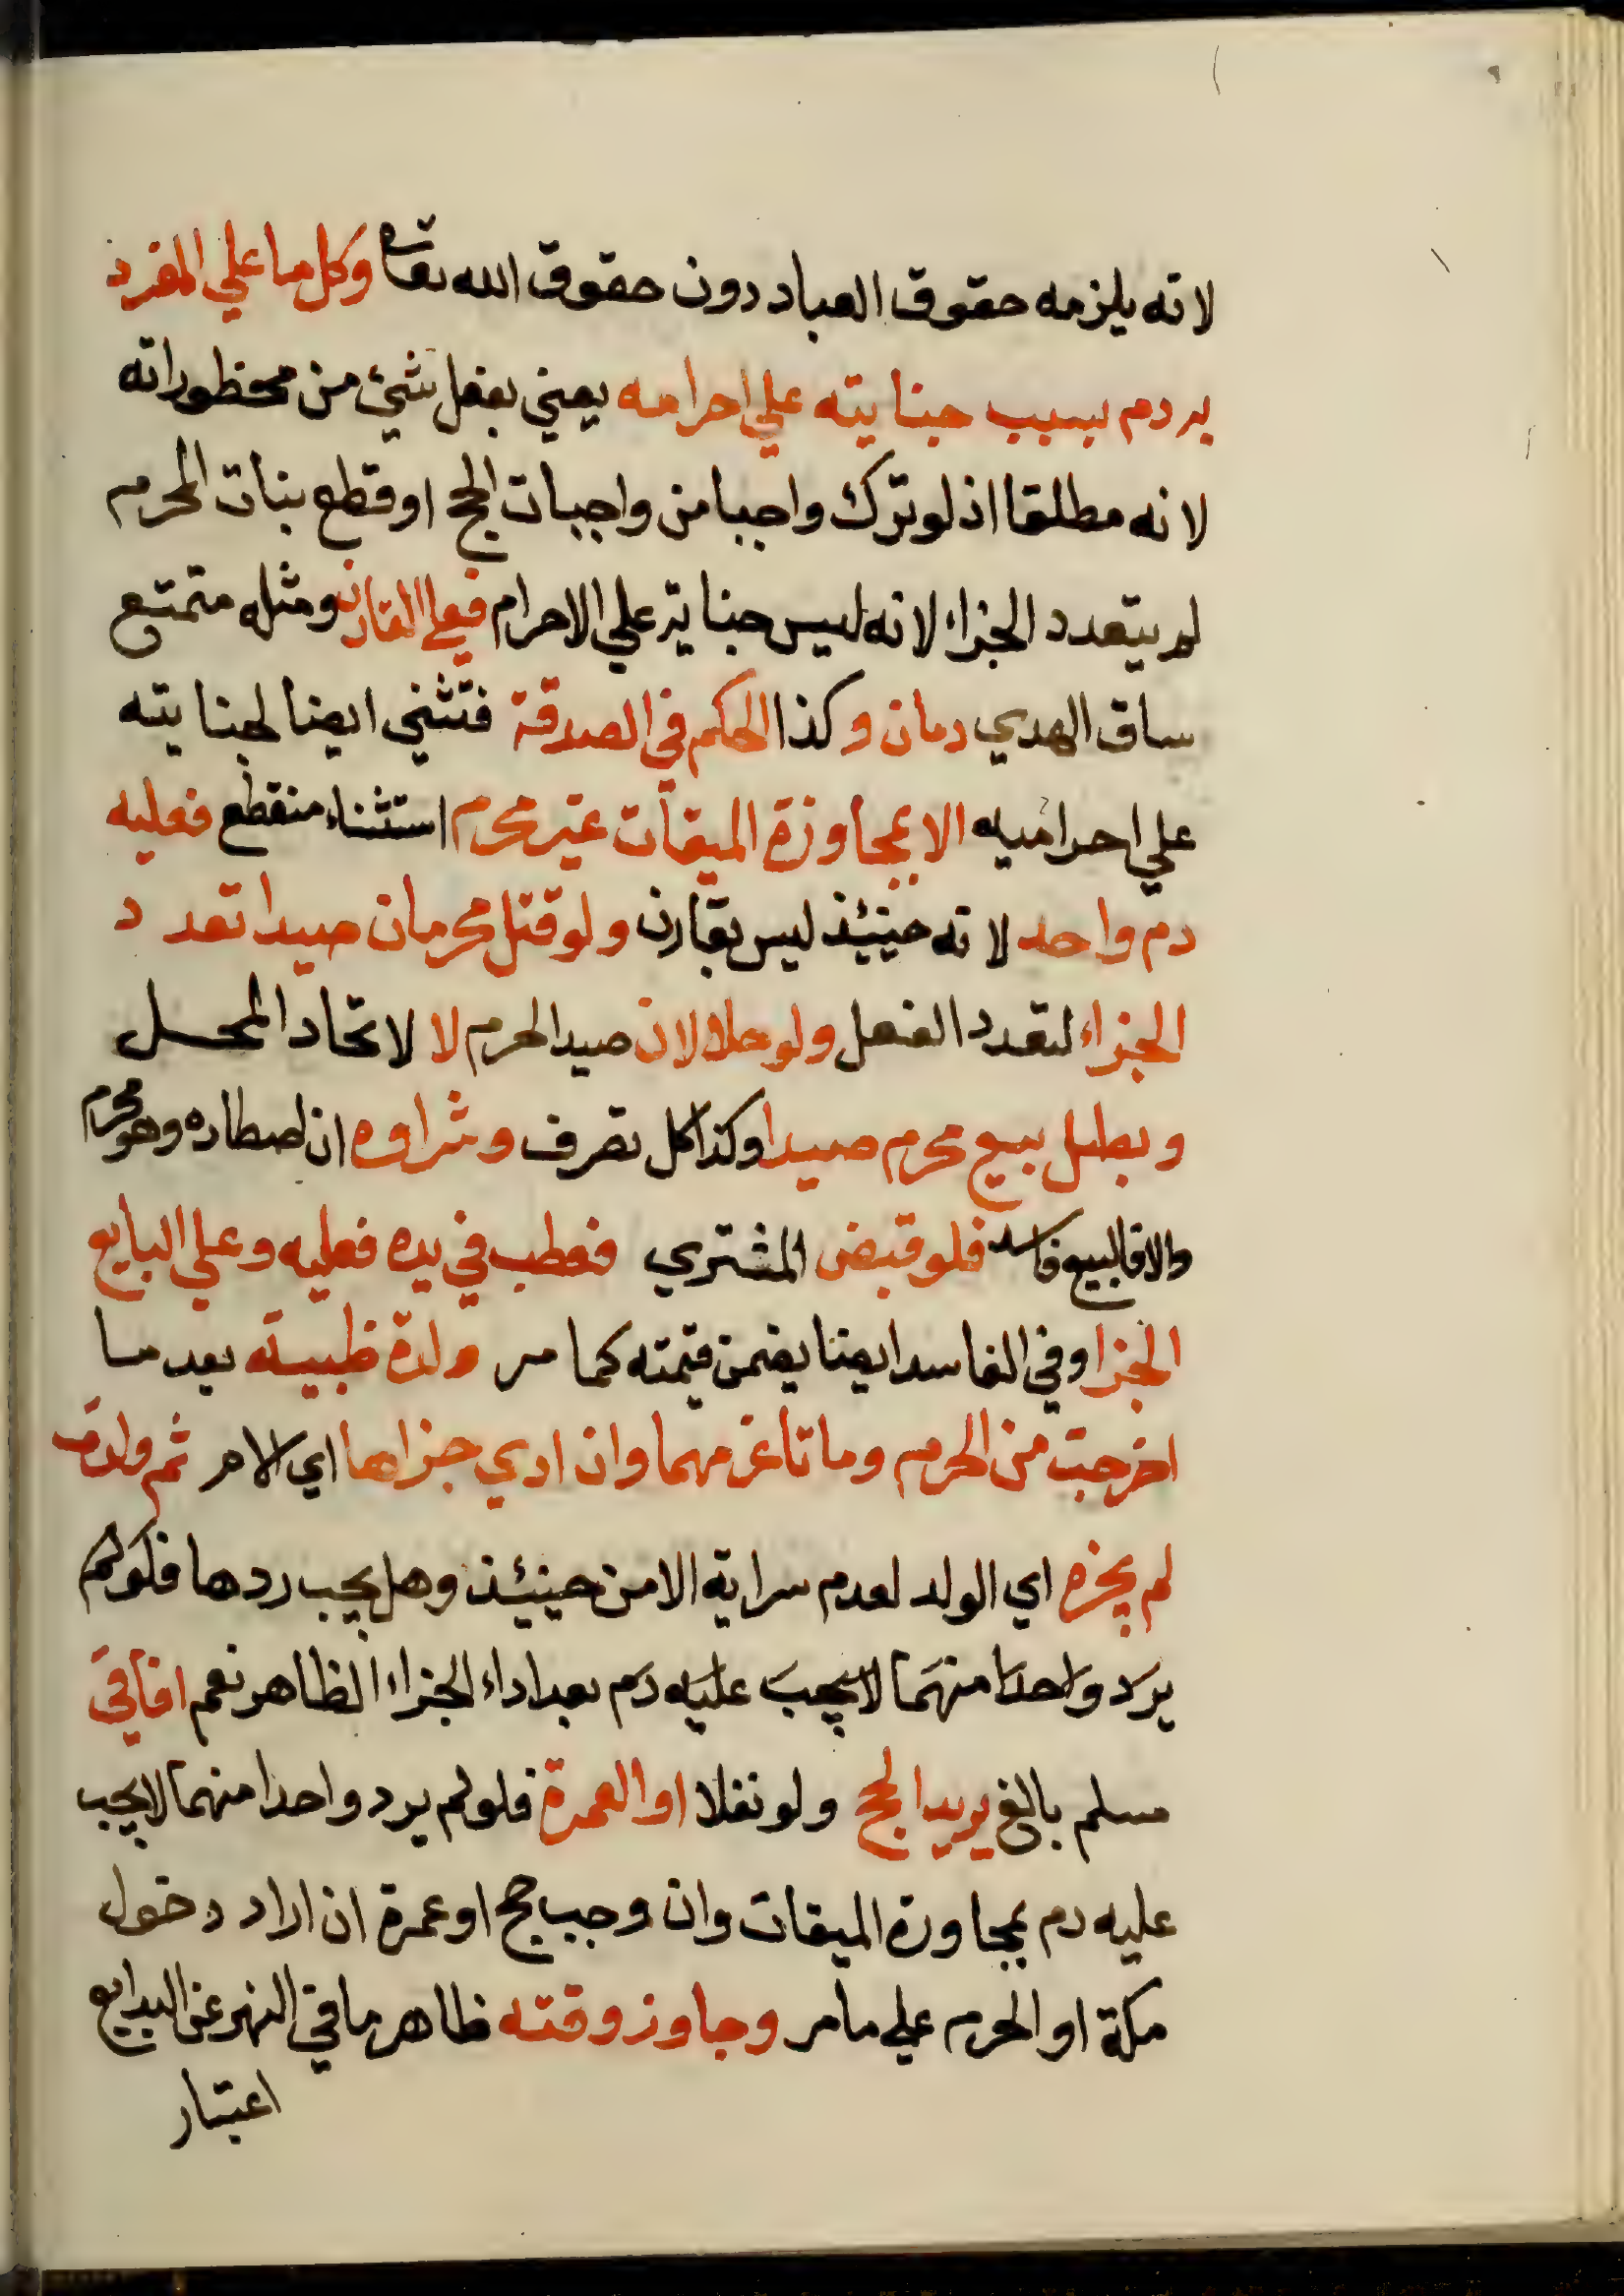 لانه يلزمه حقوق العباد دون حقوق الله تعالى وكل ما علي المفرد
به دم بسبب جنايته علي احرامه يعني بفعل شيئ من محظوراته
لانه مطلقا اذ لو ترك واجبا من واجبات الحج او قطع بنات الحرم
لم يتعدد الجزاء لانه ليس جناية علي الاحرام فعلى القارن ومثله متمتع
ساق الهدي دمان وكذا الحكم في الصدقة فتثنى ايضا لجنايته
علي احراميه الا بمجاوزة الميقات غير محرم استثناء منقطع فعليه
دم واحد لانه حينئذ ليس بقارن ولو قتل محرمان صيدا تعدد
الجزاء لتعدد الفعل ولو حلالان صيد الحرم لا لاتحاد المحل
وبطل بيع محرم صيدا وكذا كل تصرف وشراوه ان اصطاده وهو محرم
والا فالبيع فاسد فلو قبض المشتري فعطب في يده فعليه وعلي البايع
الجزا وفي الفاسد ايضا يضمن قيمته كما مر ولدة ظبية بعد ما
اخرجت من الحرم وماتا غرمهما وان ادي جزاها اي الام ثم ولدت
لم يجزه اي الولد لعدم سراية الامن حينئذ وهل يجب ردها فلو لم
يرد واحدا منهما لا يجب عليه دم بعد اداء الجزاء الظاهر نعم افاقي
مسلم بالغ يريد الحج ولو نفلا او العمرة فلو لم يرد واحدا منهما لا يجب
عليه دم بمجاورة الميقات وان وجب حج او عمرة ان اراد دخول
مكة او الحرم علي ما مر وجاوز وقته ظاهر ما في النهر عن البدايع
اعتبار